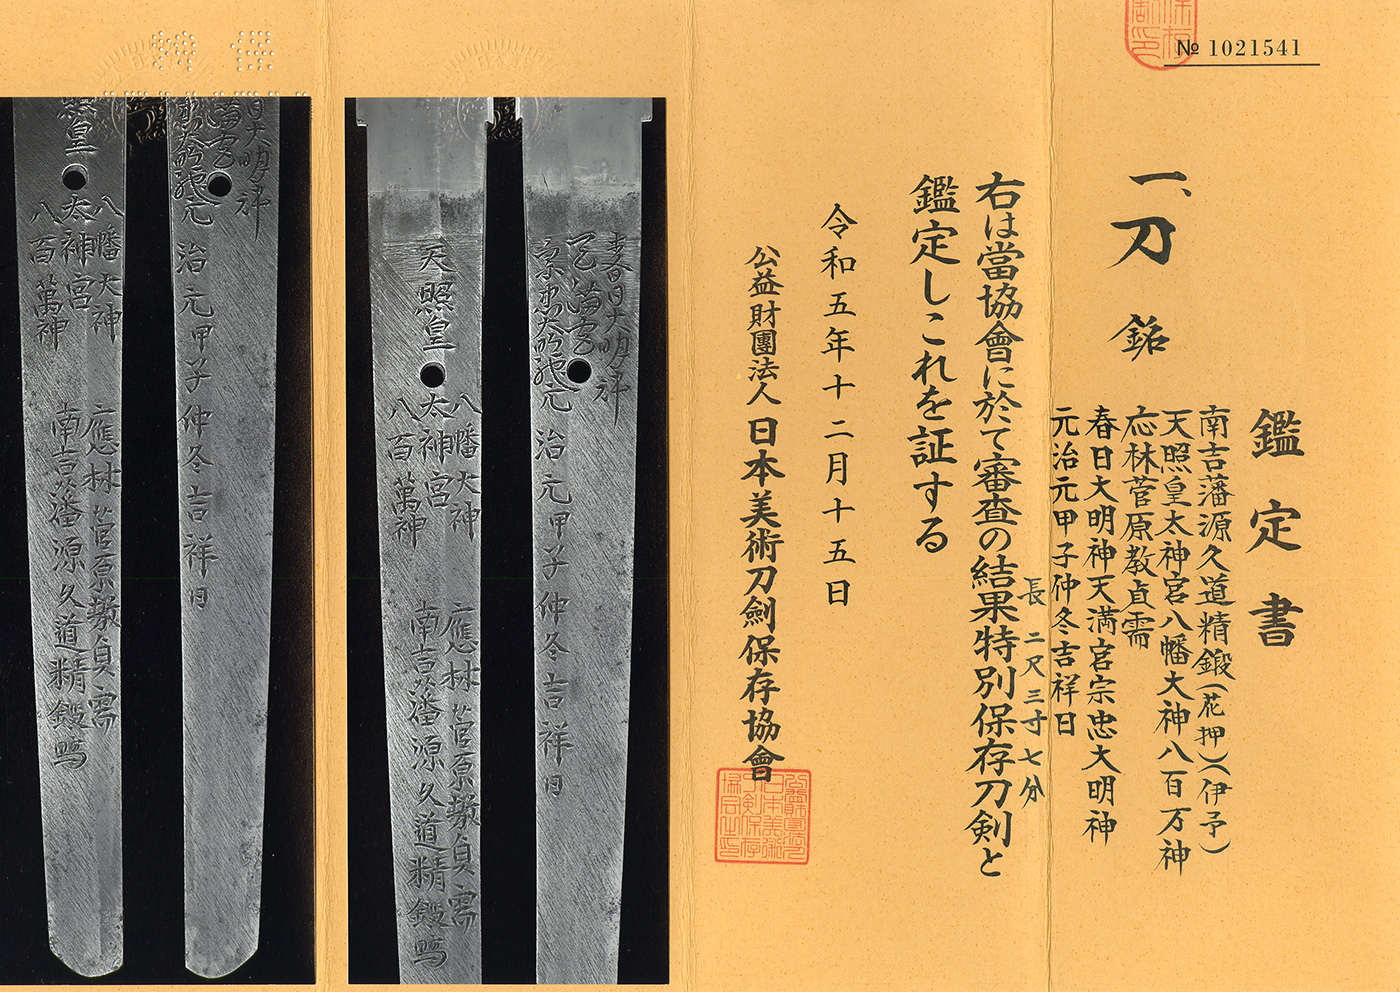 № 1021541
鑑定書
一、刀 銘
南吉藩源久道精鍛(花押)(伊予)
天照皇太神宮八幡大神八百万神
応林菅原教貞需
春日大明神天満宮宗忠大明神
元治元甲子仲冬吉祥日
長 二尺三寸七分
右は當協會に於て審査の結果特別保存刀剣と
鑑定しこれを証する
令和五年十二月十五日
公益財團法人日本美術刀劍保存協會
春日大明神
天満宮
元治元甲子仲冬吉祥日
八幡大神
天照皇太神宮
八百萬神
應林菅原教貞需
南吉藩源久道精鍛
日大明神
元治元甲子仲冬吉祥日
八幡大神
照皇太神宮
八百萬神
應林菅原教貞需
南吉藩源久道精鍛